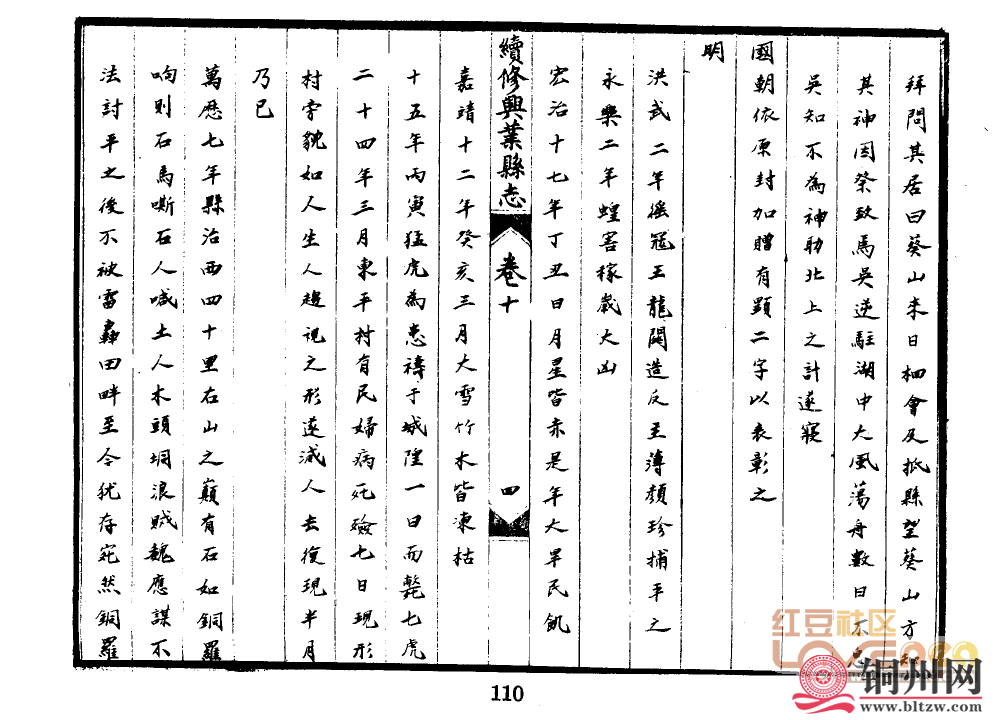 拜問其居曰葵山来日相會及抵縣望葵山方知
其神因祭致焉吳逆駐湖中大風蕩舟數日不息
吳知不為神助北上之計遂寢
國朝依原封加贈有顕二字以表彰之
明
洪武二年徭冦王龍闗造反主薄顏珍捕平之
永樂二年蝗害稼歲大凶
宏治十七年丁丑日月星皆赤是年大旱民飢
續修興葉縣志
卷十
四
嘉靖十二年癸亥三月大雪竹木皆凍枯
十五年丙寅猛虎為患禱于城隍一日而斃七虎
二十四年三月東平村有民婦病死殮七日現形
村旁貌如人生人趨視之形遂滅人去復現半月
乃已
萬歷七年縣治西四十里右山之巔有石如銅羅
响則石馬嘶石人喊土人木頭垌浪賊魏應謀不
法討平之後不被雷轟田畔至今犹存宛然銅羅
110
红豆社区
铜州网
www.bltzw.com